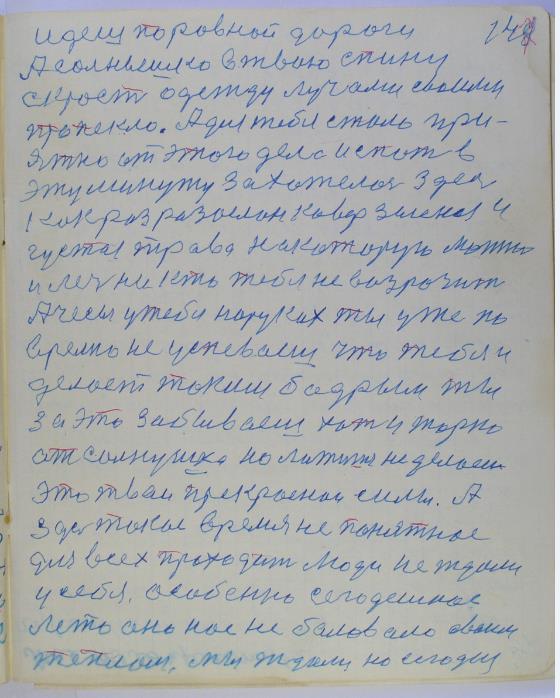 148
идеш поровной дороги
А солнышко втваю спину
скрост одежду лучами своими
пропекло. А для тебя стало при-
ятно от этого дела и спат в
эту минуту захотелос здес
как раз разослан кавер зеленая и
густая трава на которую можно
и леч никто тебя не возрозит
А часы у тебя на руках ты уже по
время не успеваеш что тебя и
делает таким бодрым ты
за это забываеш хот и жарко
от солнушка но
это тваи прекрасной силы. А
здес такое время не понятное
для всех проходит люди не ждали
у себя. особенно сегодешное
лето оно нас не баловало своим
теплом, мы ждали но сегодня